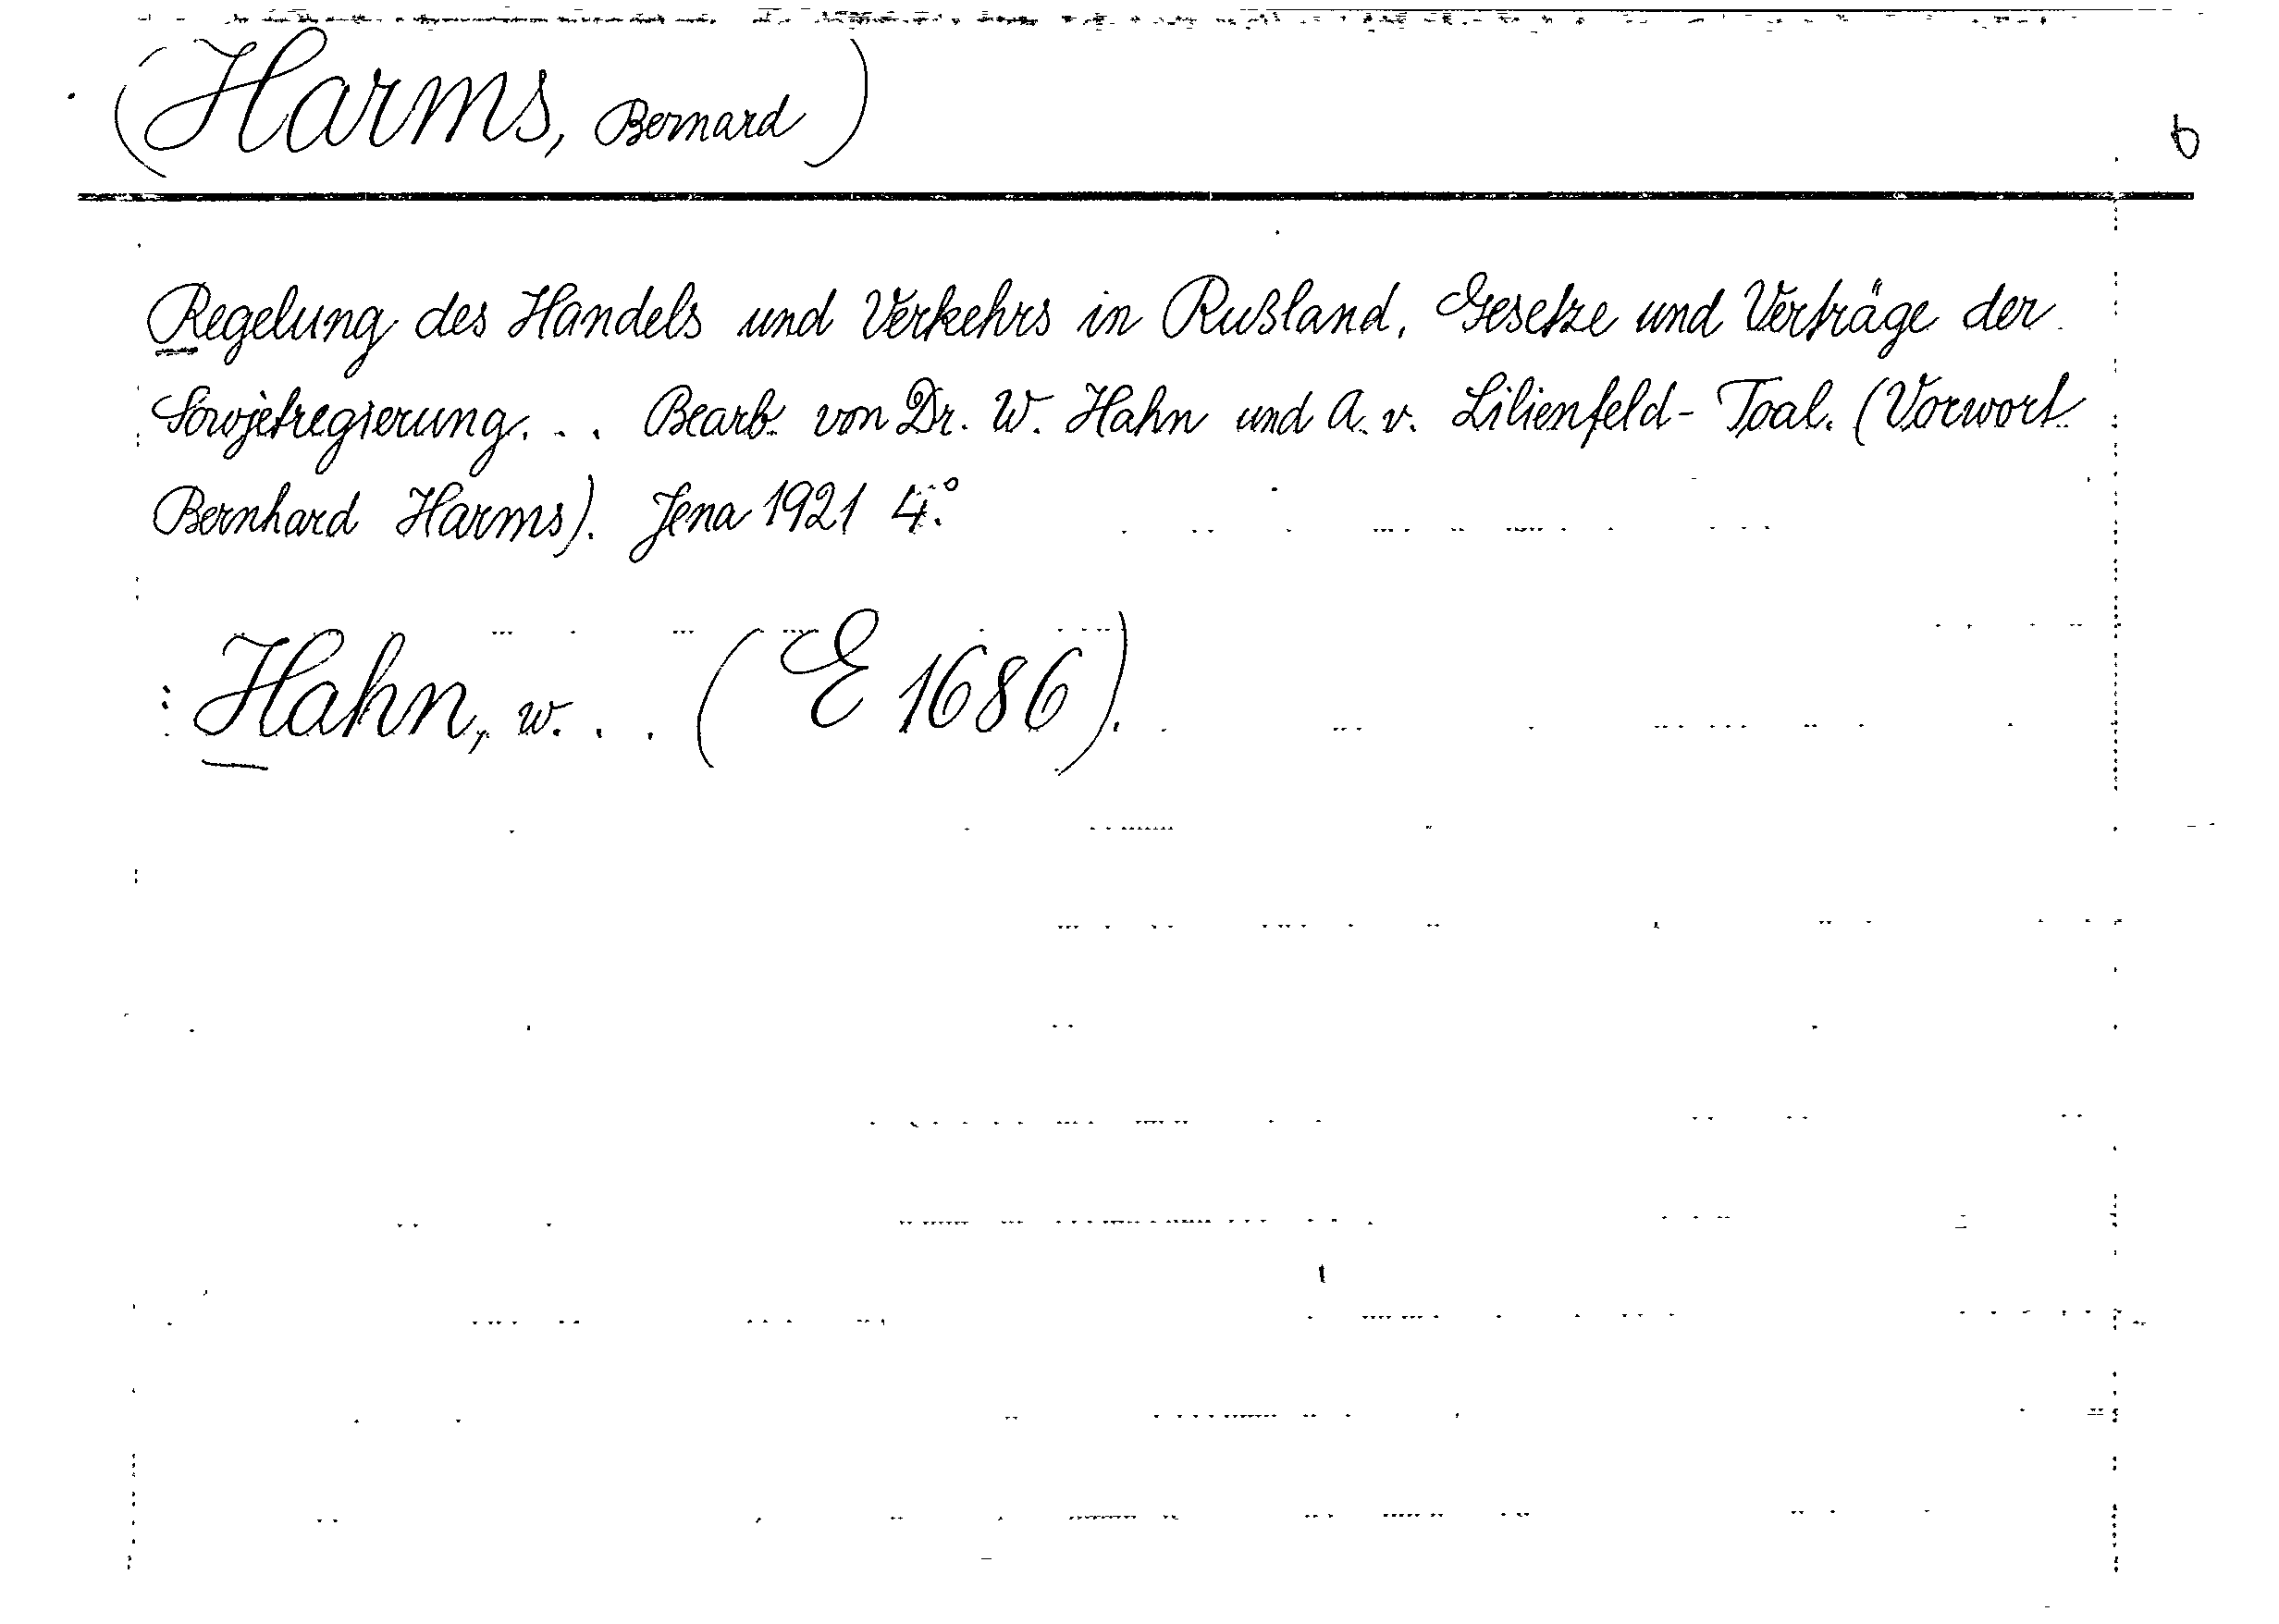 (Harms, Bernard)
6
Regelung des Handels und Verkehrs in Rußland. Gesetze und Verträge der
Sowjetregierung... Bearb. von Dr. W. Hahn und A. v. Lilienfeld-Toal. (Vorwort
Bernhard Harms). Jena 1921 4.°
Hahn, W... (E 1686).